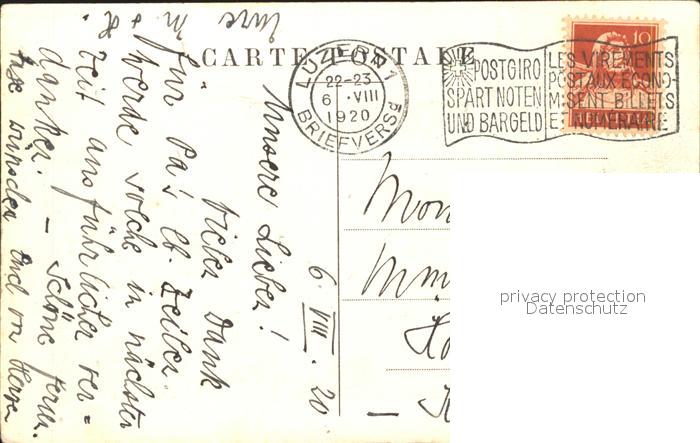 CARTE POSTALE
LUZERN 1
22-23
6. VIII
1920
BRIEFVERSd
POSTGIRO
SPART NOTEN
UND BARGELD
LES VIREMENTS
POSTAUX ECONO-
MISENT BILLETS
ET NUMERAIRE
10
6. VIII. 20
Unsere Lieben!
Vielen Dank
für Pa's lb. Zeilen
werde solche in nächster
Zeit ausführlicher ver=
danken. – Schöne Ferien.
wünschen Euch von Herzen
Eure
privacy protection
Datenschutz